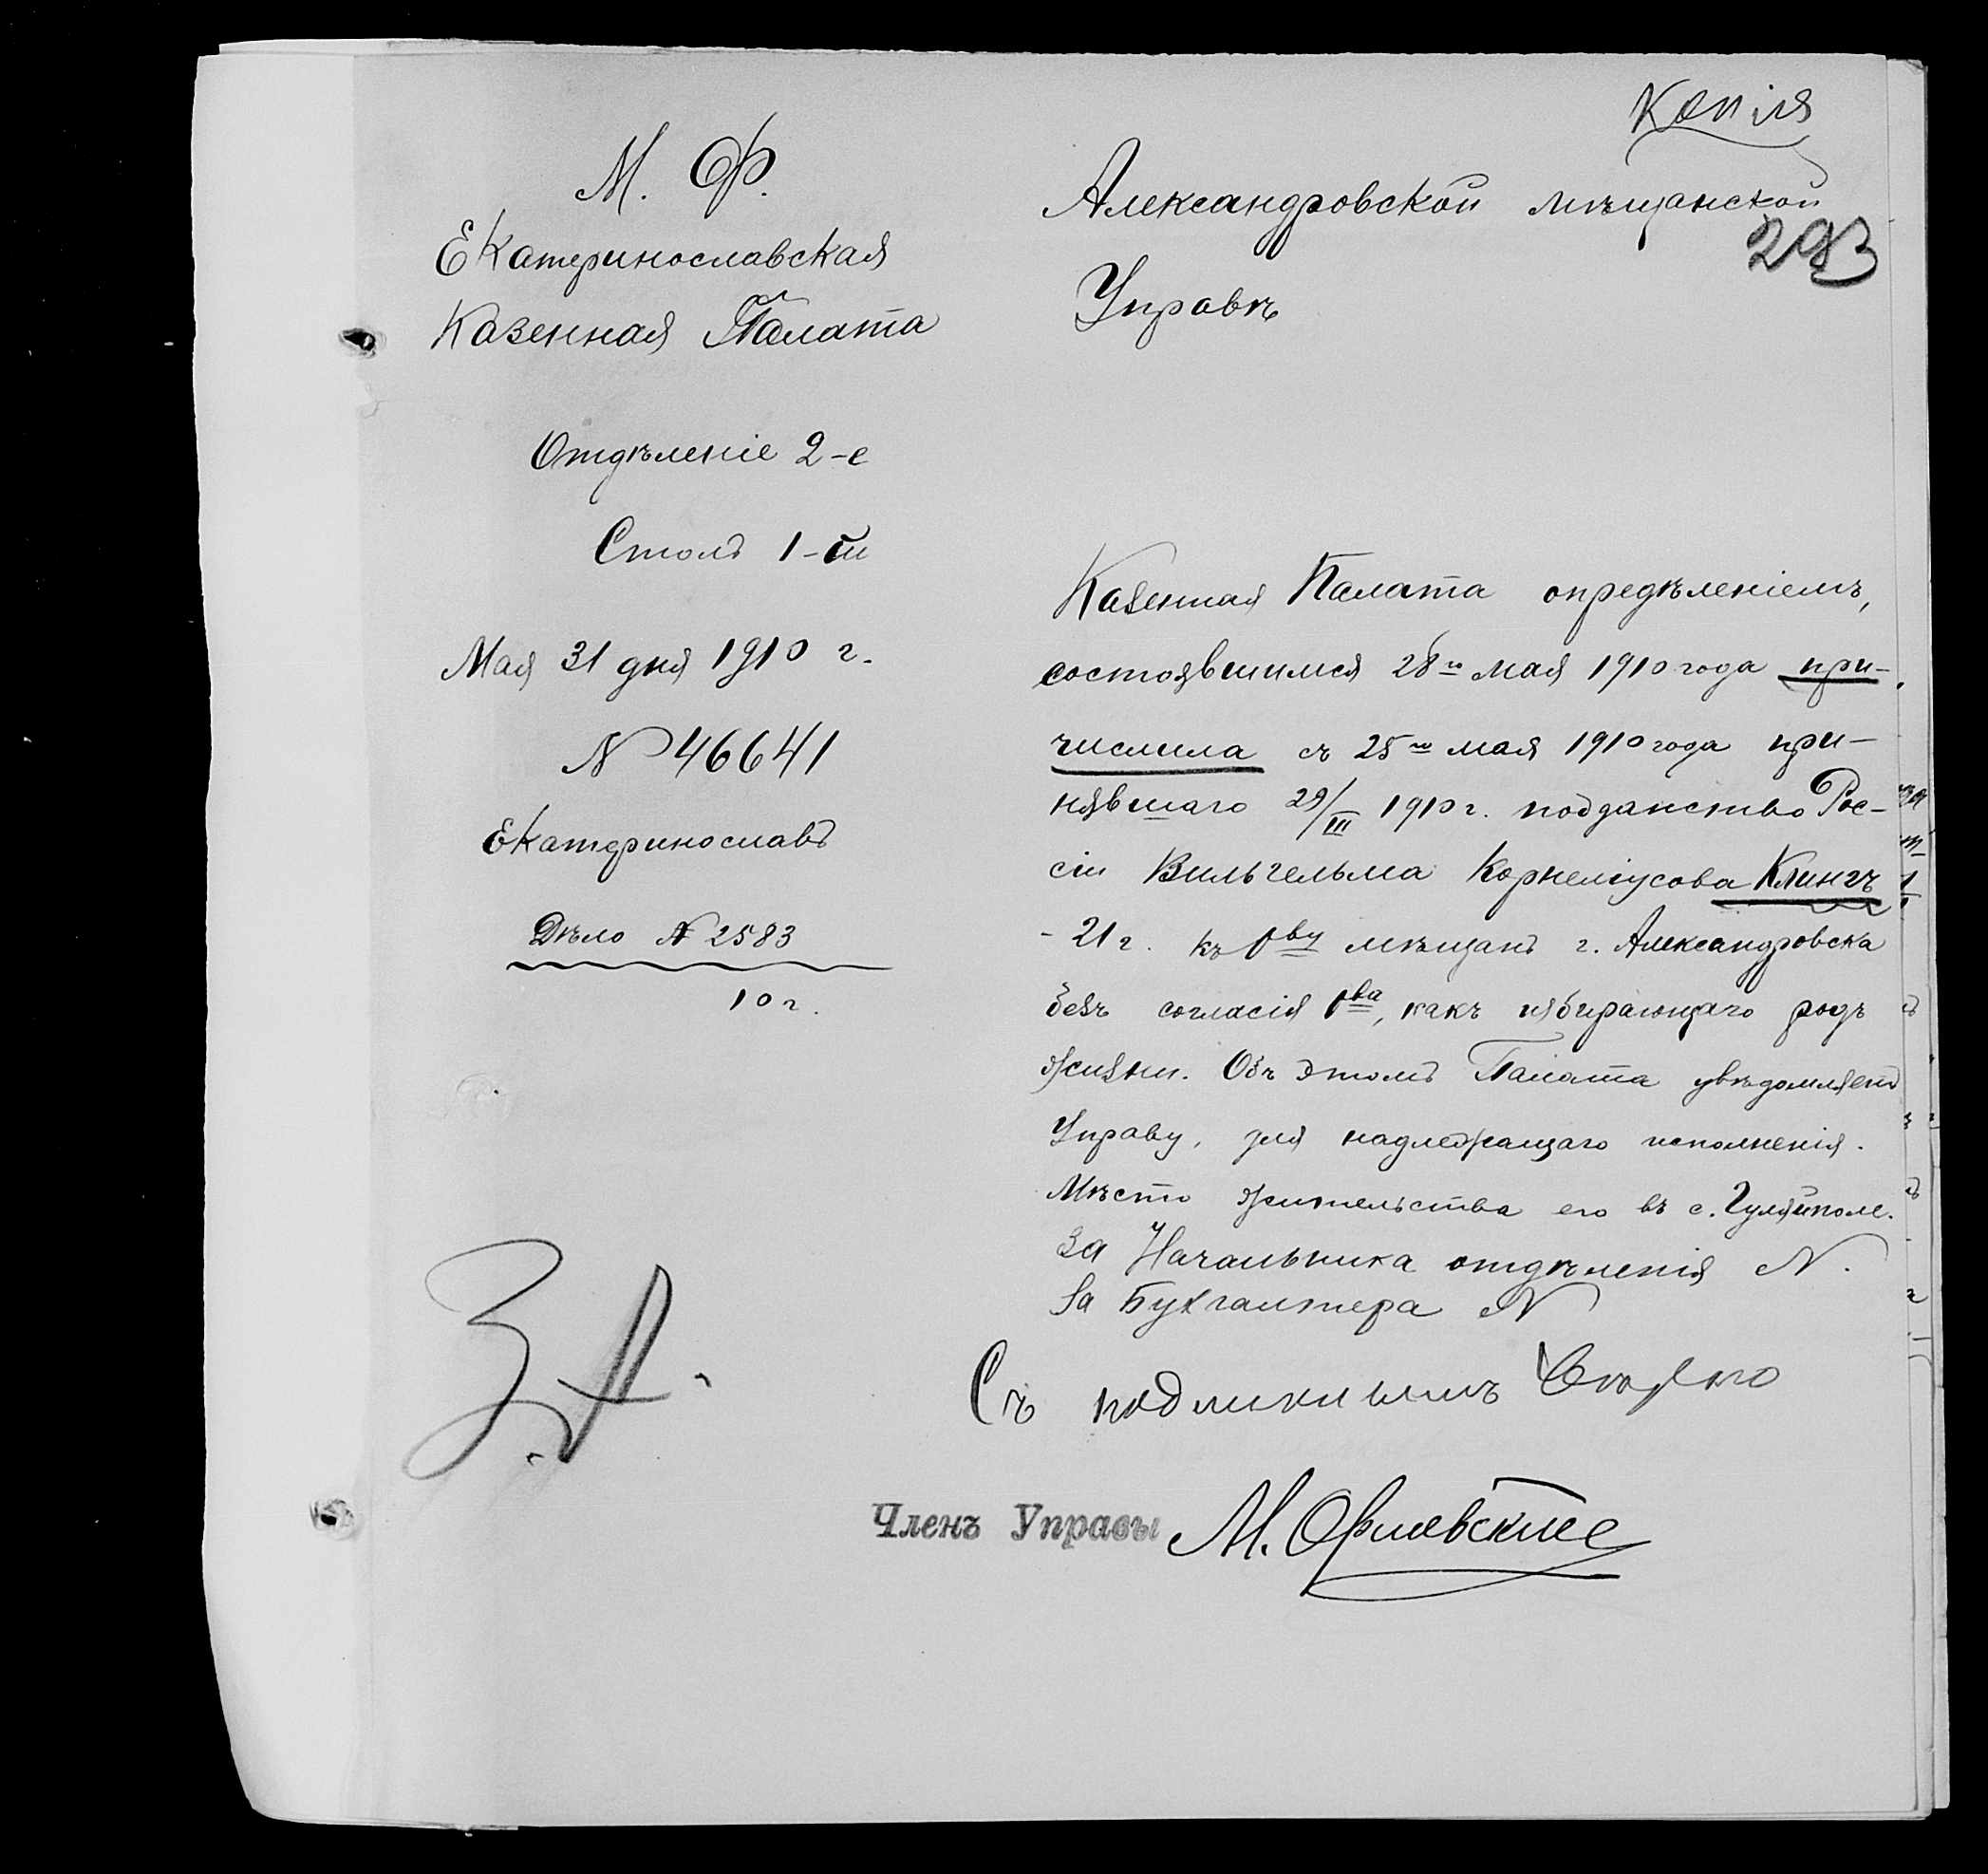 Копія
М. Ф.
Екатеринославская
Казенная Палата
Отдѣленіе 2-е
Столъ 1-й
Мая 31 дня 1910 г.
№ 46641
Екатеринославъ
Дѣло № 2583
10 г.
Александровской мѣщанской
293
Управѣ
Казенная Палата опредѣленіемъ,
состоявшимся 28го мая 1910 года при-
числила съ 25го мая 1910 года при-
нявшаго 29/III 1910 г. подданство Рос-
сіи Вильгельма Корнеліусова Клингъ
- 21 г. къ о‑ву мѣщанъ г. Александровска
безъ согласія о‑ва, какъ избирающаго родъ
жизни. Объ этомъ Палата увѣдомляетъ
Управу, для надлежащаго исполненія.
Мѣсто жительства его въ с. Гуляйполе.
За Начальника отдѣленія N.
За Бухгалтера N
Съ подлиннымъ вѣрно
З.А.
Членъ Управы М.